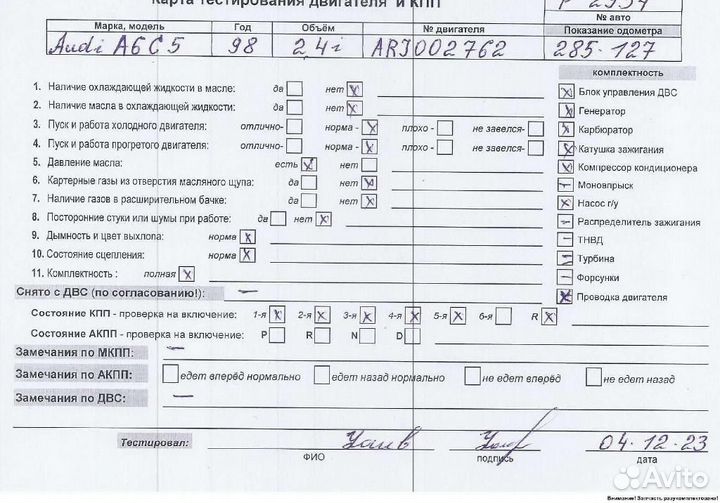 Карта тестирования двигателя и КПП
Р 2954
№ авто
Марка, модель Год Объём № двигателя Показание одометра
Audi A6C5 98 2,4i ARJ002762 285·127
комплектность
1. Наличие охлаждающей жидкости в масле: да нет X
X Блок управления ДВС
2. Наличие масла в охлаждающей жидкости: да нет X
X Генератор
3. Пуск и работа холодного двигателя: отлично- норма - X плохо - не завелся-
X Карбюратор
4. Пуск и работа прогретого двигателя: отлично- норма - X плохо - не завелся-
X Катушка зажигания
5. Давление масла: есть X нет
X Компрессор кондиционера
6. Картерные газы из отверстия масляного щупа: да нет X
– Моновпрыск
7. Наличие газов в расширительном бачке: да нет X
X Насос г/у
8. Посторонние стуки или шумы при работе: да нет X
– Распределитель зажигания
9. Дымность и цвет выхлопа: норма X
– ТНВД
10. Состояние сцепления: норма X
– Турбина
11. Комплектность : полная X
– Форсунки
Снято с ДВС (по согласованию!): —
X Проводка двигателя
Состояние КПП - проверка на включение: 1-я X 2-я X 3-я X 4-я X 5-я X 6-я R X
Состояние АКПП - проверка на включение: P R N D
Замечания по МКПП: —
Замечания по АКПП: едет вперёд нормально едет назад нормально не едет вперёд не едет назад
Замечания по ДВС: —
Тестировал: 04·12·23
ФИО подпись дата
Avito
Внимание! Запчасть разукомплектована!